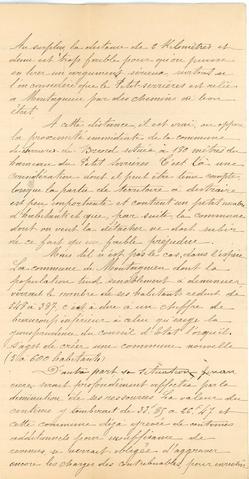 Au surplus la distance de 2 kilomètres et
demi est trop faible pour qu'on puisse
en tirer un argument sérieux surtout si
l'on considère que le Petit Sorriès est relié
à Montagneux par des chemins de bon
état.
A cette distance, il est vrai, on oppose
la proximité immédiate de la commune
de située à 180 mètres du
hameau du Petit Sorriès. C'est là une
considération dont il peut être tenu compte
lorsque la partie de territoire à distraire
est peu importante et contient un petit nombre
d'habitants et que, par suite, la commune
dont on veut la détacher ne doit subir
de ce fait qu'un faible préjudice.
Mais tel n'est pas le cas, dans l'espèce.
La commune de Montagneux dont la
population tend sensiblement à diminuer
verrait le nombre de ses habitants réduit de
à 397, c'est à dire à un chiffre de
beaucoup inférieur à celui qu'exige la
jurisprudence du conseil d'Etat lorsqu'il
s'agit de créer une commune nouvelle
(5 à 600 habitants)
D'autre part sa situation finan
cière serait profondément affectée par la
diminution de ses ressources. La valeur du
centime y tomberait de à et
cette commune déjà grevée de centimes
additionnels pour insuffisance de
revenus se verrait obligée d'aggraver
encore les charges des contribuables pour